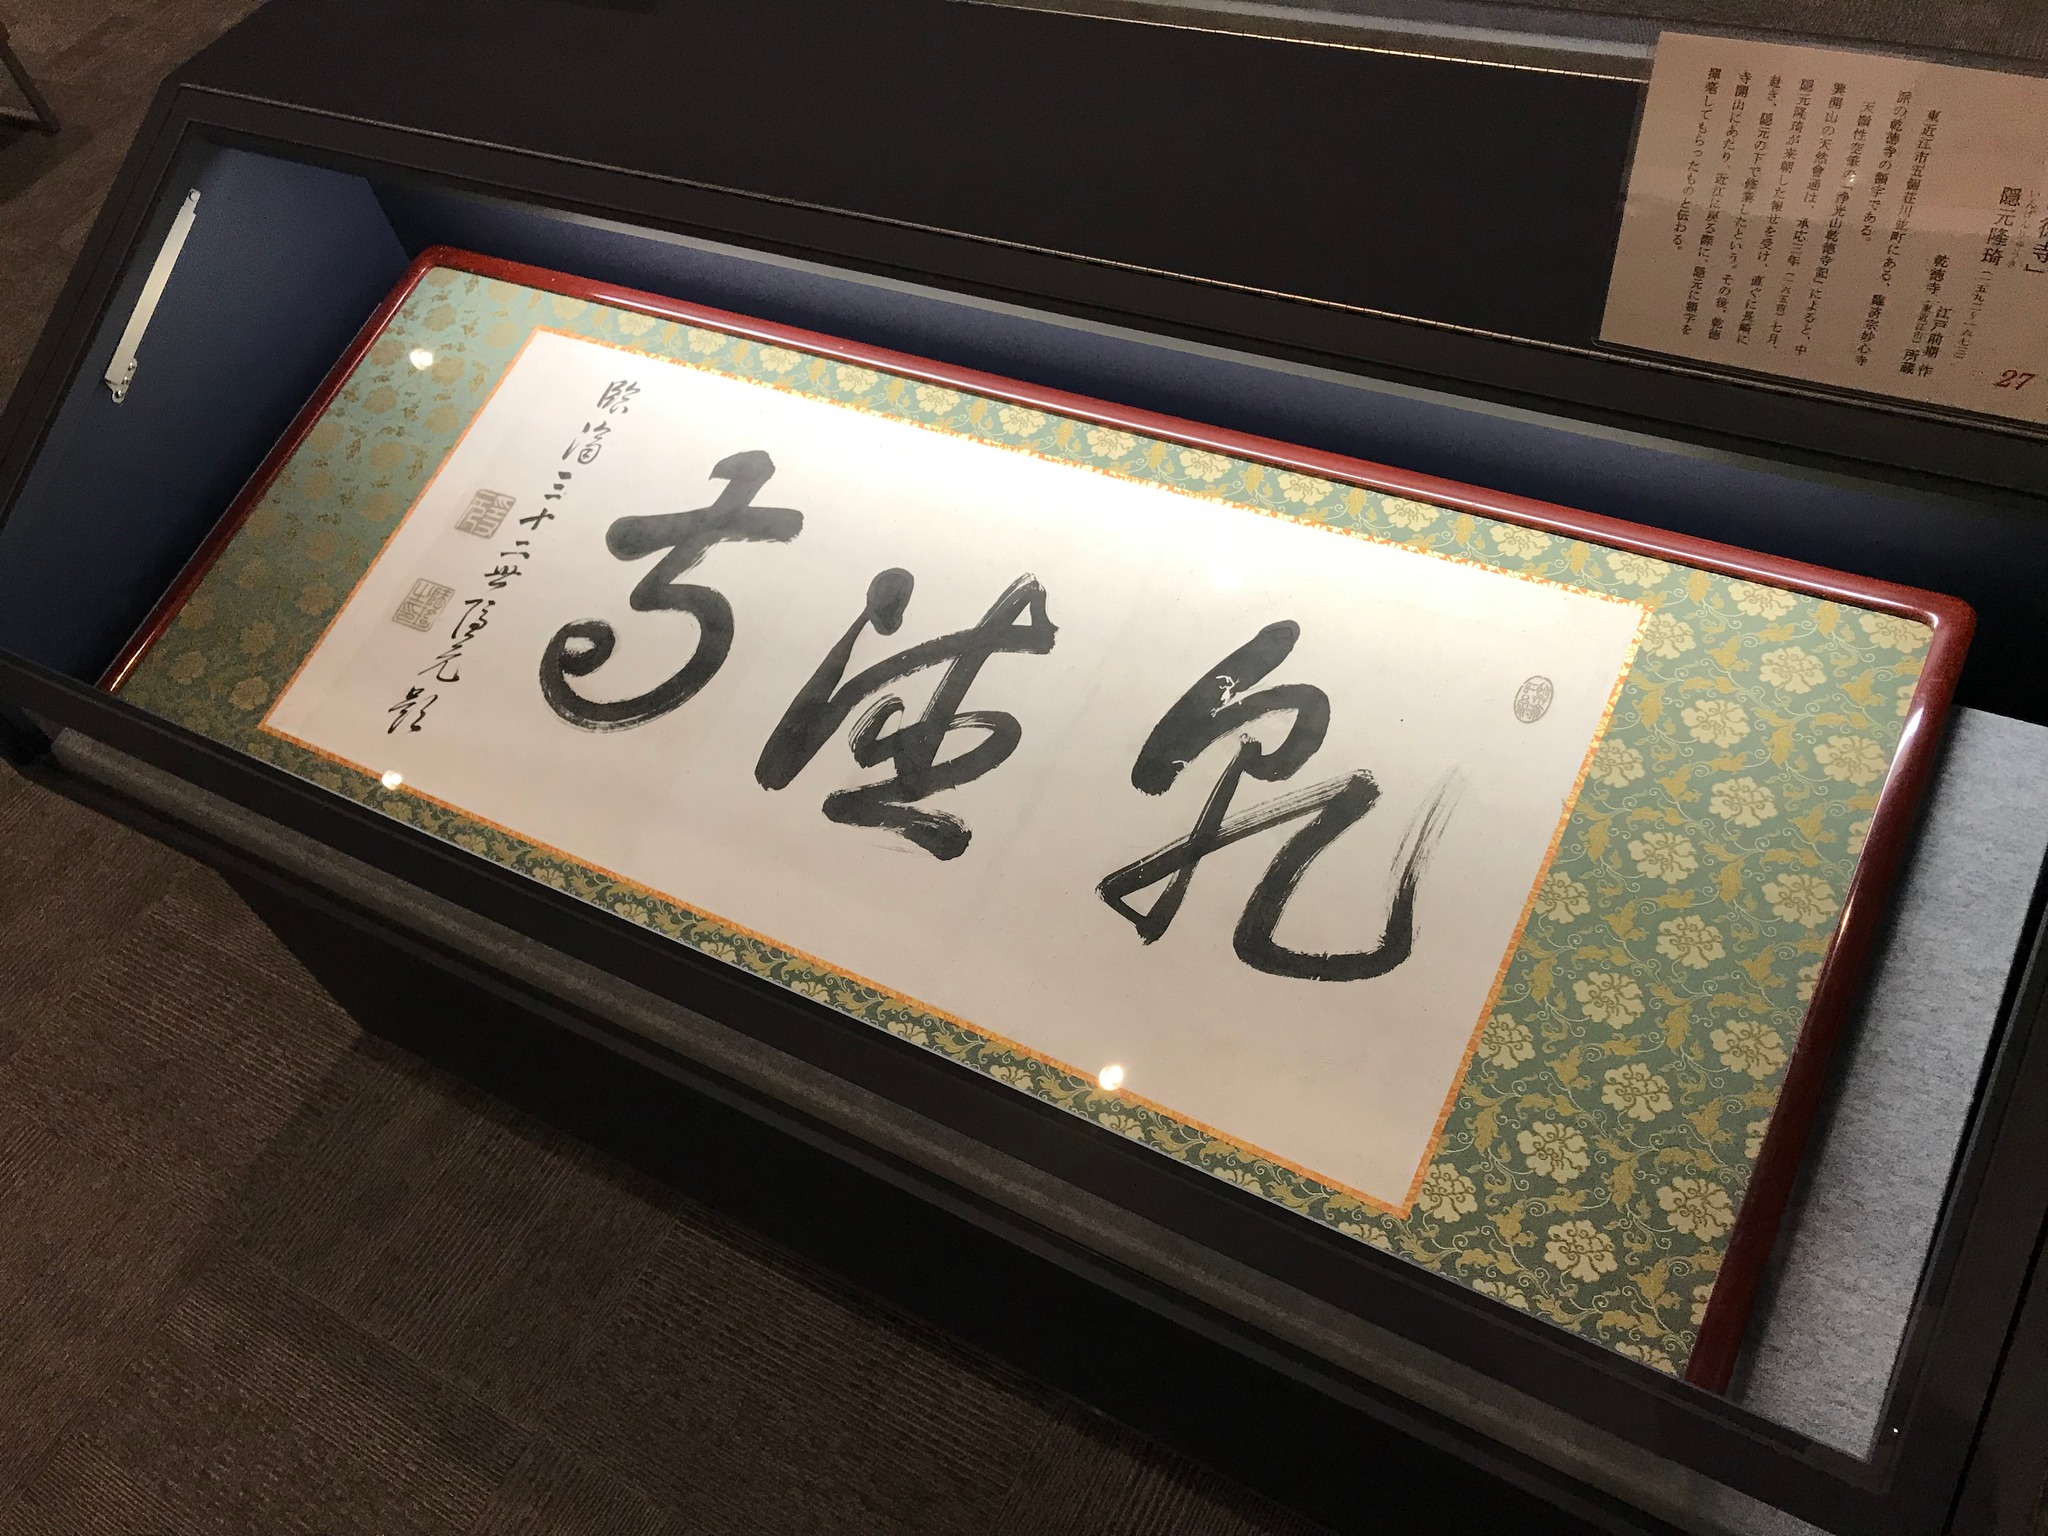 乾徳寺
臨済三十二世隠元題
徳寺」
いんげんりゅうき
隠元隆琦（一五九二～一六七三）
江戸前期 作
乾徳寺（東近江市）所蔵
27
東近江市五個荘川並町にある、臨済宗妙心寺
派の乾徳寺の額字である。
天嶺性空筆の『浄光山乾徳寺記』によると、中
興開山の天然會通は、承応三年（一六五四）七月、
隠元隆琦が来朝した報せを受け、直ぐに長崎に
赴き、隠元の下で修業したという。その後、乾徳
寺開山にあたり、近江に戻る際に、隠元に額字を
揮毫してもらったものと伝わる。